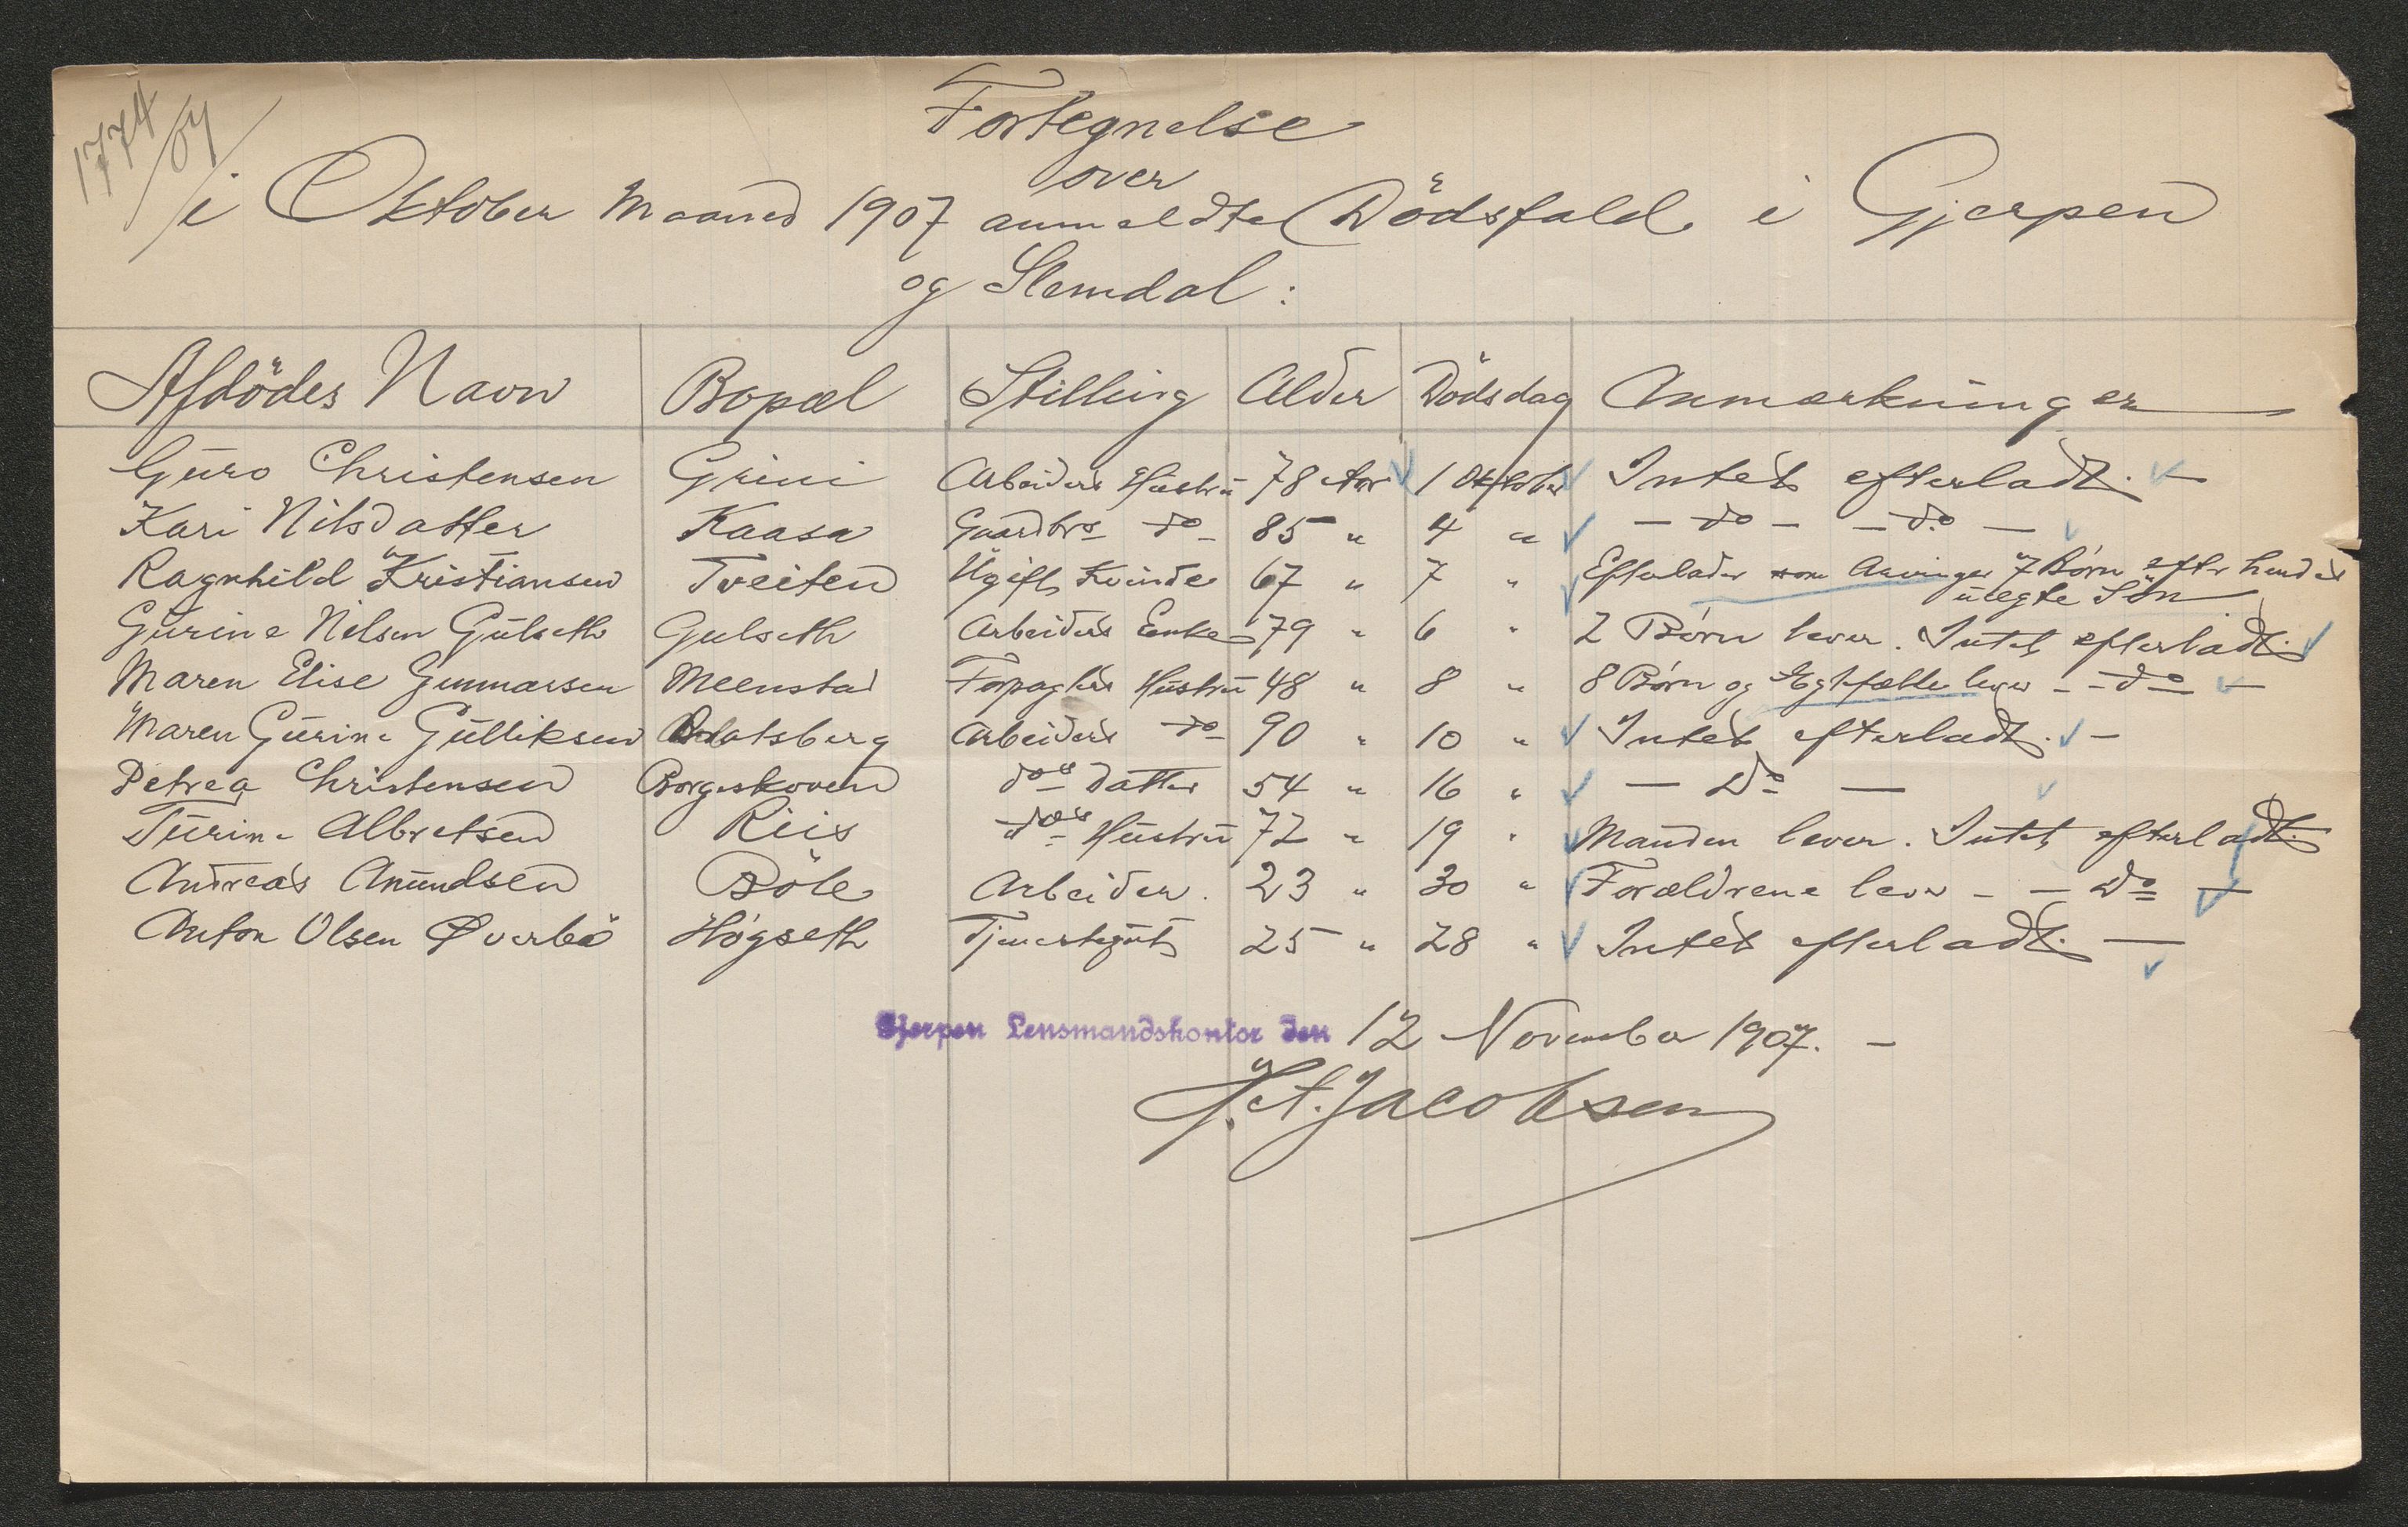 1774/07
Fortegnelse
over
i Oktober Maaned 1907 anmeldte Dödsfald i Gjerpen
og Slemdal:
Afdödes Navn Bopæl Stilling Alder Dödsdag Anmærkninger
Guro Christensen Grini Arbeiders Hustru 78 Aar 1 Oktober Intet efterladt. —
Kari Nilsdatter Kaasa Gaardbrs do 85 " 4 " — do — — do —
Ragnhild Kristiansen Tveiten Ugift Kvinde 67 " 7 " Efterlader som Arvinger 7 Børn efter hendes
uægte Sön
Gurine Nilsen Gulseth Gulseth Arbeiders Enke 79 " 6 " 2 Børn lever. Intet efterladt.
Maren Elise Gunnarsen Meenstad Forpagters Hustru 48 " 8 " 8 Børn og Egtefælle lever — do —
Maren Gurine Gulliksen Bratsberg Arbeiders do 90 " 10 " Intet efterladt. —
Petrea Christensen Borgeskoven dos Datter 54 " 16 " — Do —
Turine Albretsen Riis dos Hustru 72 " 19 " Manden lever. Intet efterladt.
Andreas Amundsen Böle Arbeider. 23 " 30 " Forældrene lever — — Do —
Anton Olsen Øverbö Högseth Tjenestegut 25 " 28 " Intet efterladt. —
Gjerpen Lensmandskontor den 12 November 1907. —
J. A. Jacobsen